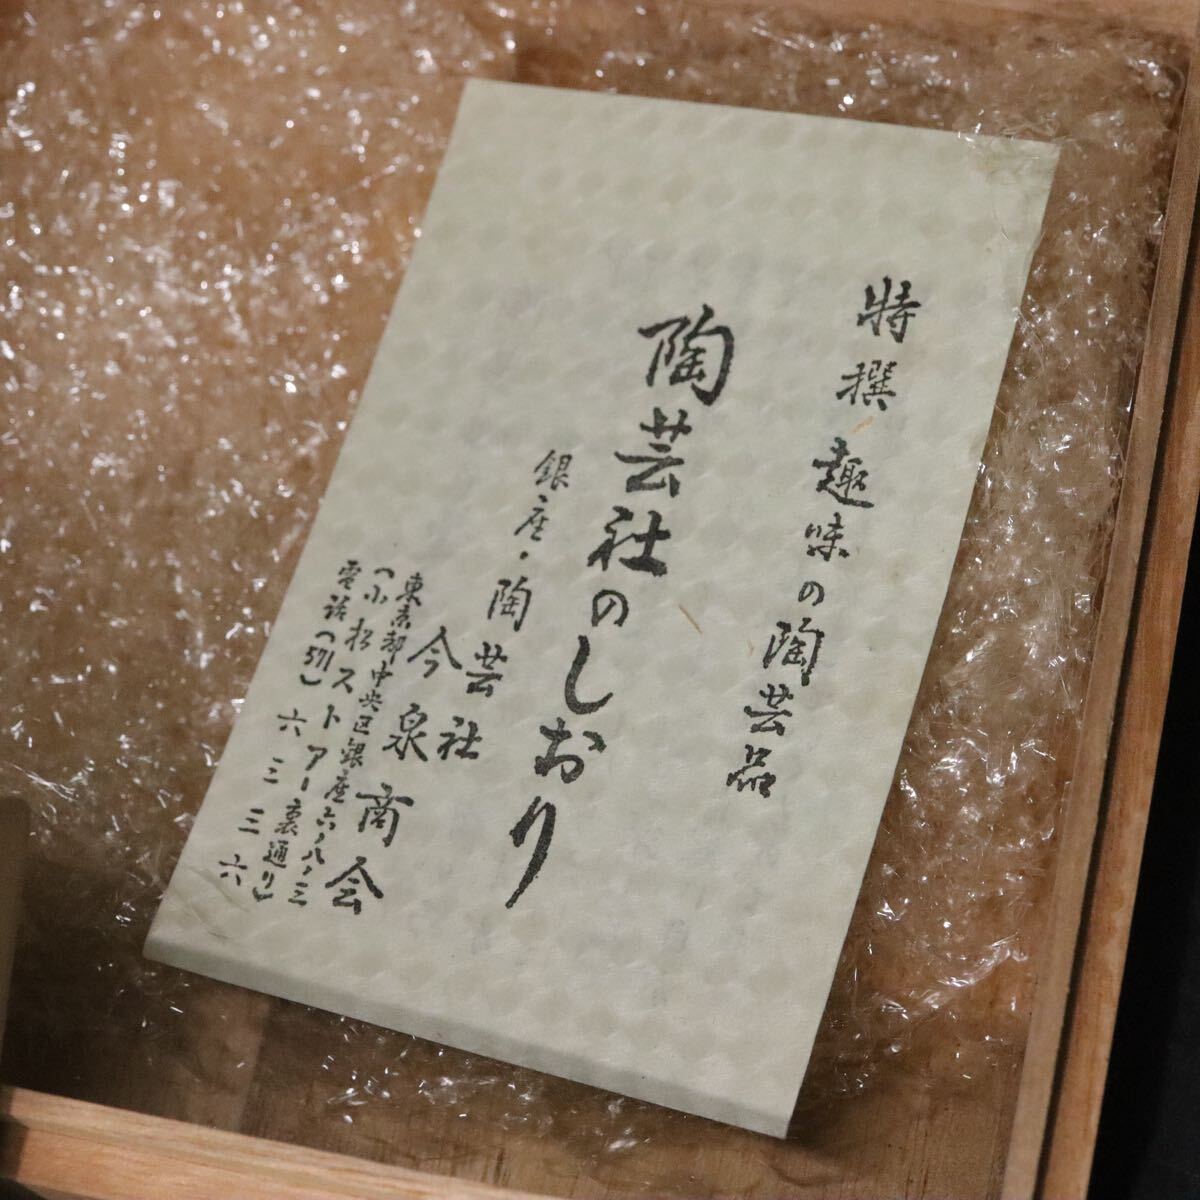 特撰 趣味の陶芸品
陶芸社のしおり
銀座・陶芸社
今泉商会
東京都中央区銀座六ノ八ノ三
(小松ストアー裏通り)
電話(571)六三三六